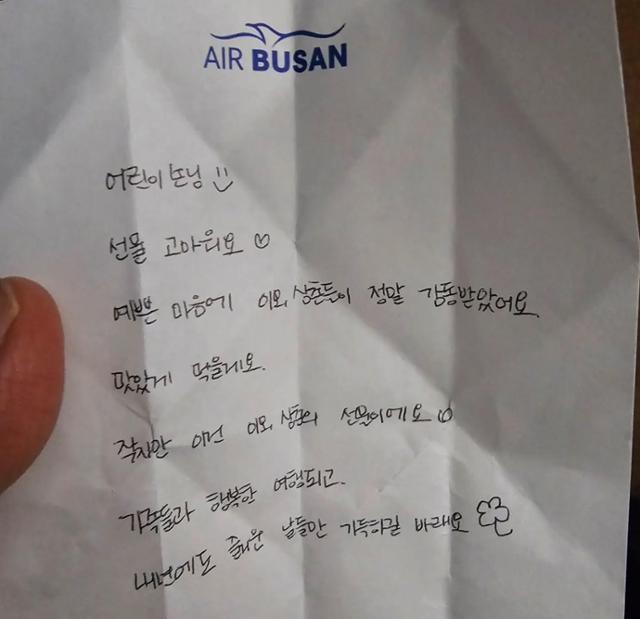 AIR BUSAN
어린이 뜨님
선물 고마워요
예쁜 마음에 이모, 삼촌들이 정말 감동받았어요.
맛있게 먹을게요.
작지만 이건 이모, 삼촌의 선물이에요
가족들과 행복한 여행되고.
내년에도 즐거운 날들만 가득하길 바래요